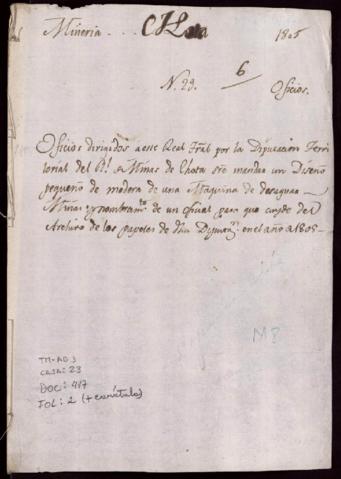 Mineria . . . Chota 1805
6
N. 29. Oficios.
Oficios dirigidos a este Real Tral por la Diputacion Terri
torial del Rl de Minas de Chota sre mandar un Diseño
pequeño de madera de una Maquina de desaguar
Minas y nombramto de un oficial para que cuyde del
Archivo de los papeles de dha Diputn en el año de 1805
M8
TM-AD3
CAJA: 23
DOC: 417
FOL: 2 (+ carátula)